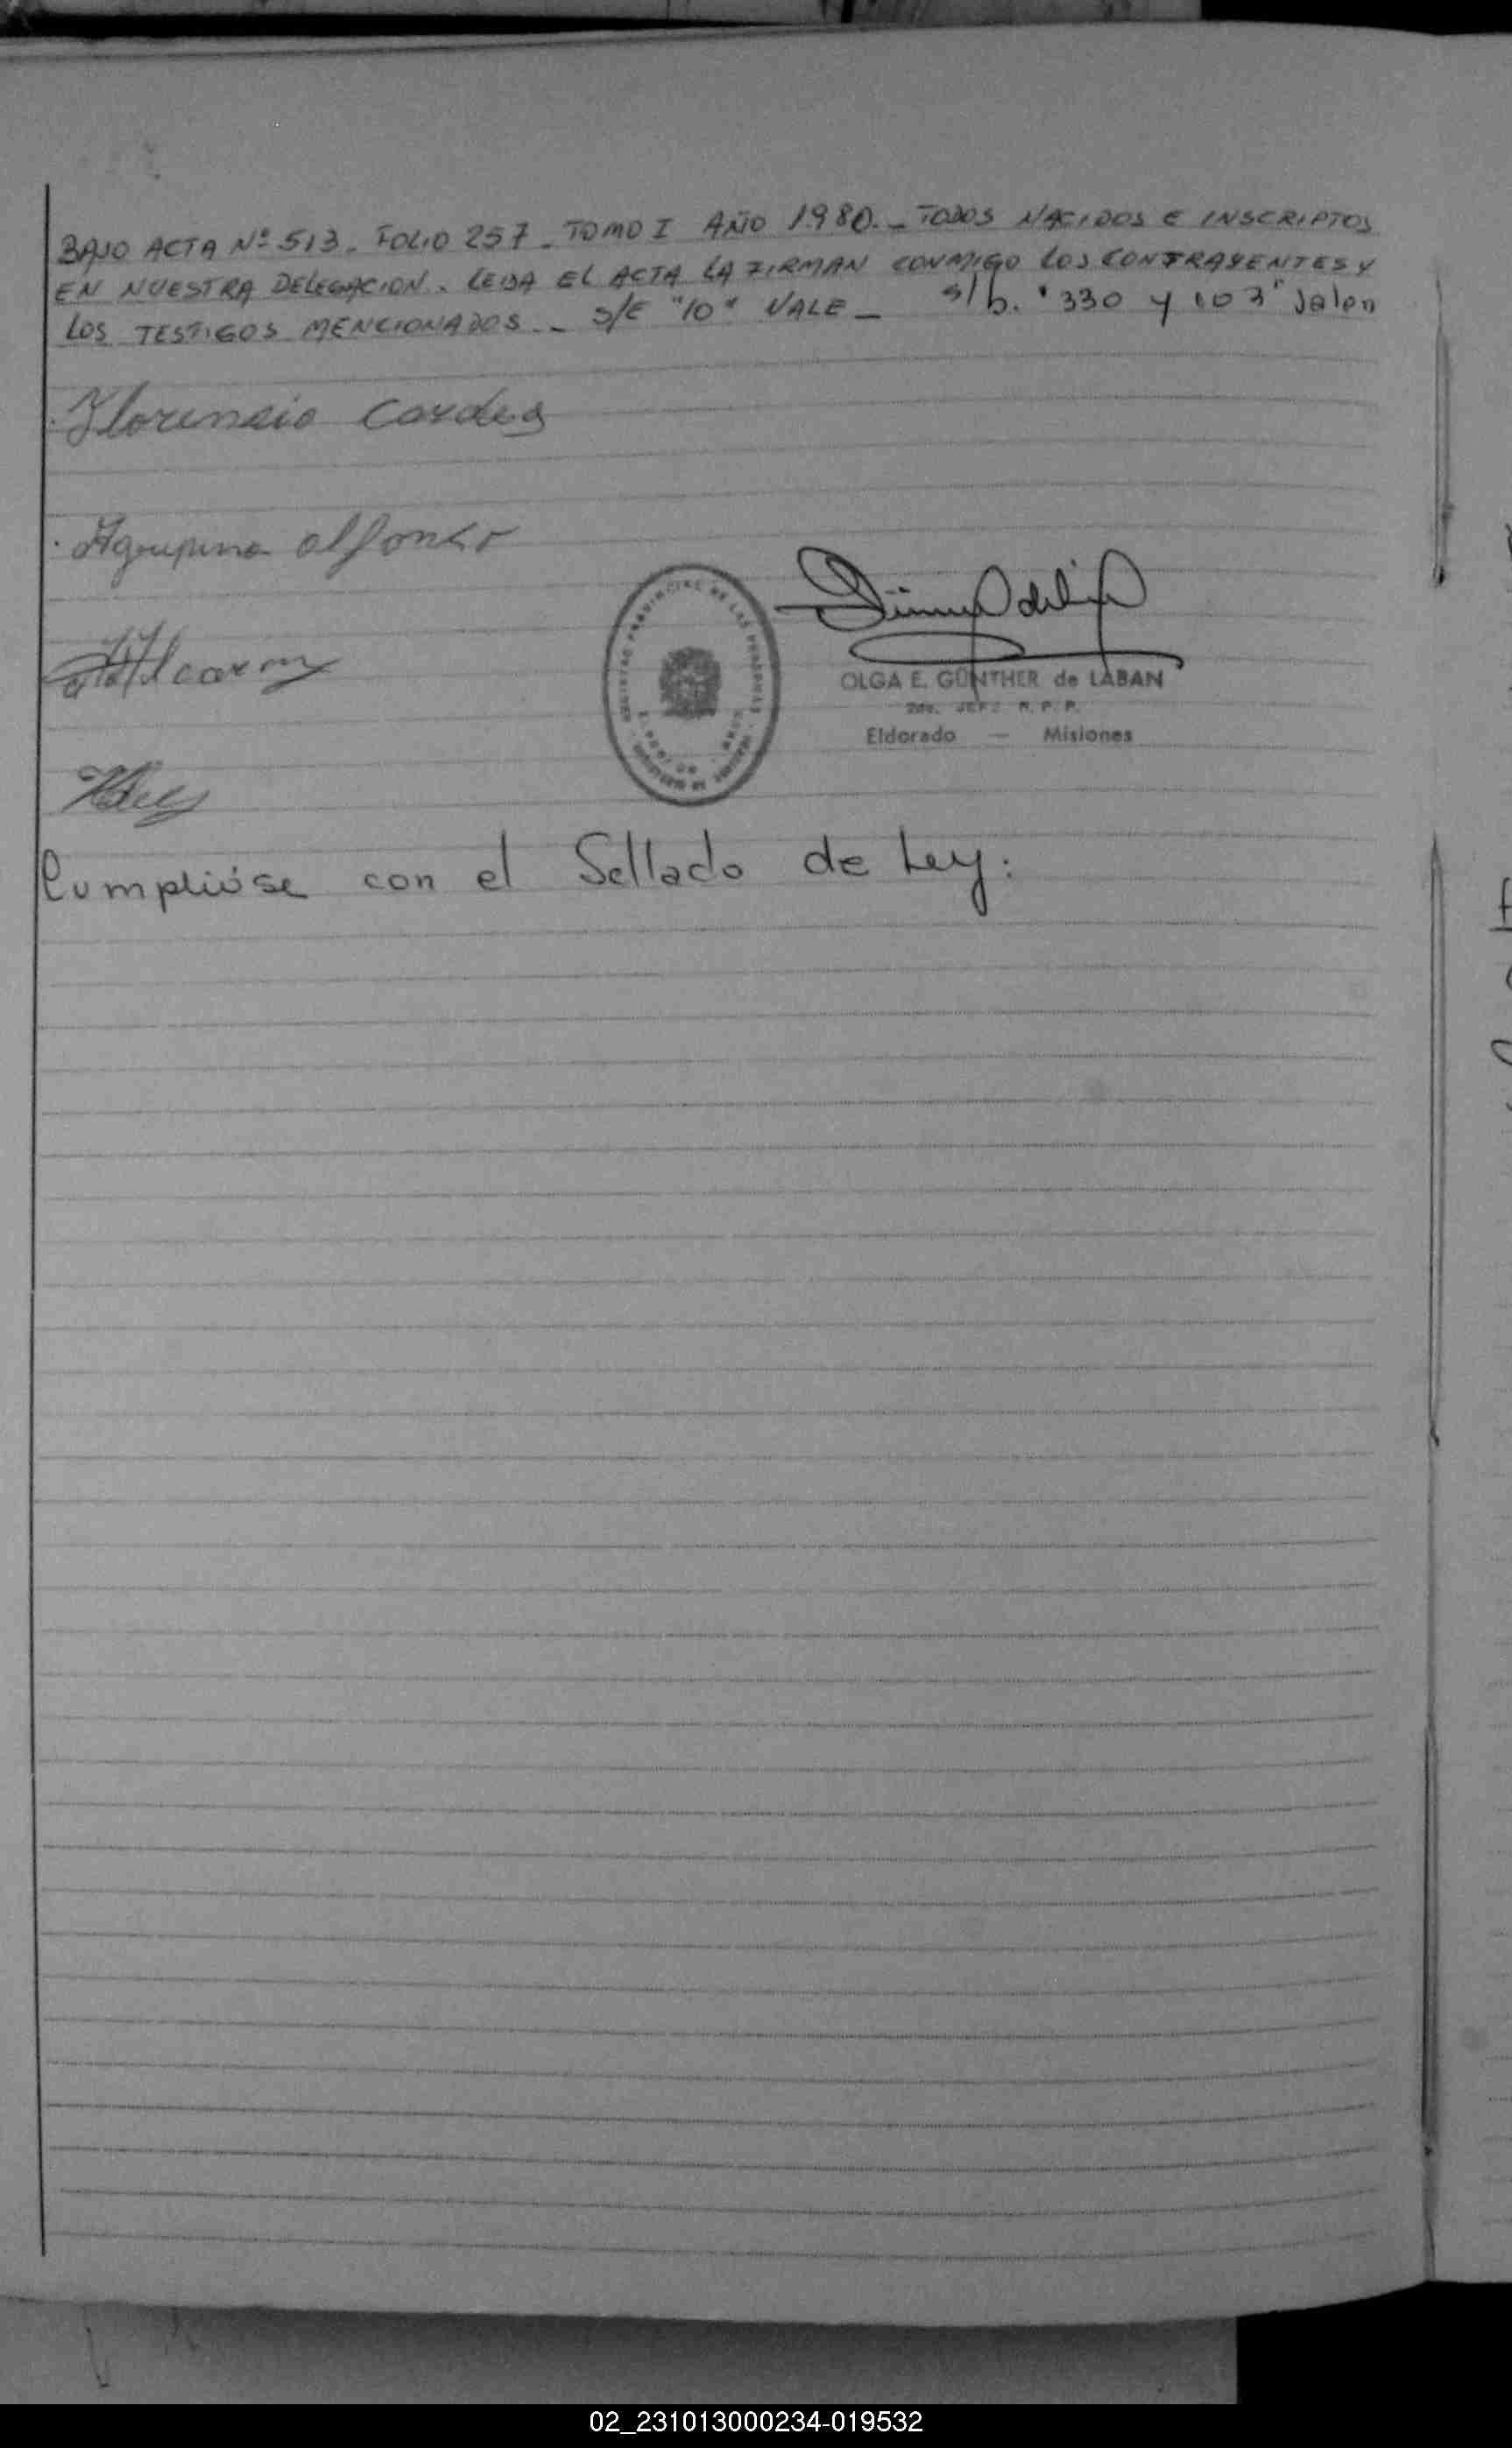 BAJO ACTA Nº 513. FOLIO 257. TOMO I AÑO 1980. _ TODOS NACIDOS E INSCRIPTOS
EN NUESTRA DELEGACION. LEIDA EL ACTA LA FIRMAN CONMIGO LOS CONTRAYENTES Y
LOS TESTIGOS MENCIONADOS. _ S/E "10" VALE _ s/b. "330 y 103" Valen
Florencio
Agripina Alfonso
OLGA E. GÜNTHER de LABAN
2do. JEFE R. P. P.
Eldorado — Misiones
REGISTRO PROVINCIAL DE LAS PERSONAS
Cumplióse con el Sellado de Ley:
02_231013000234-019532